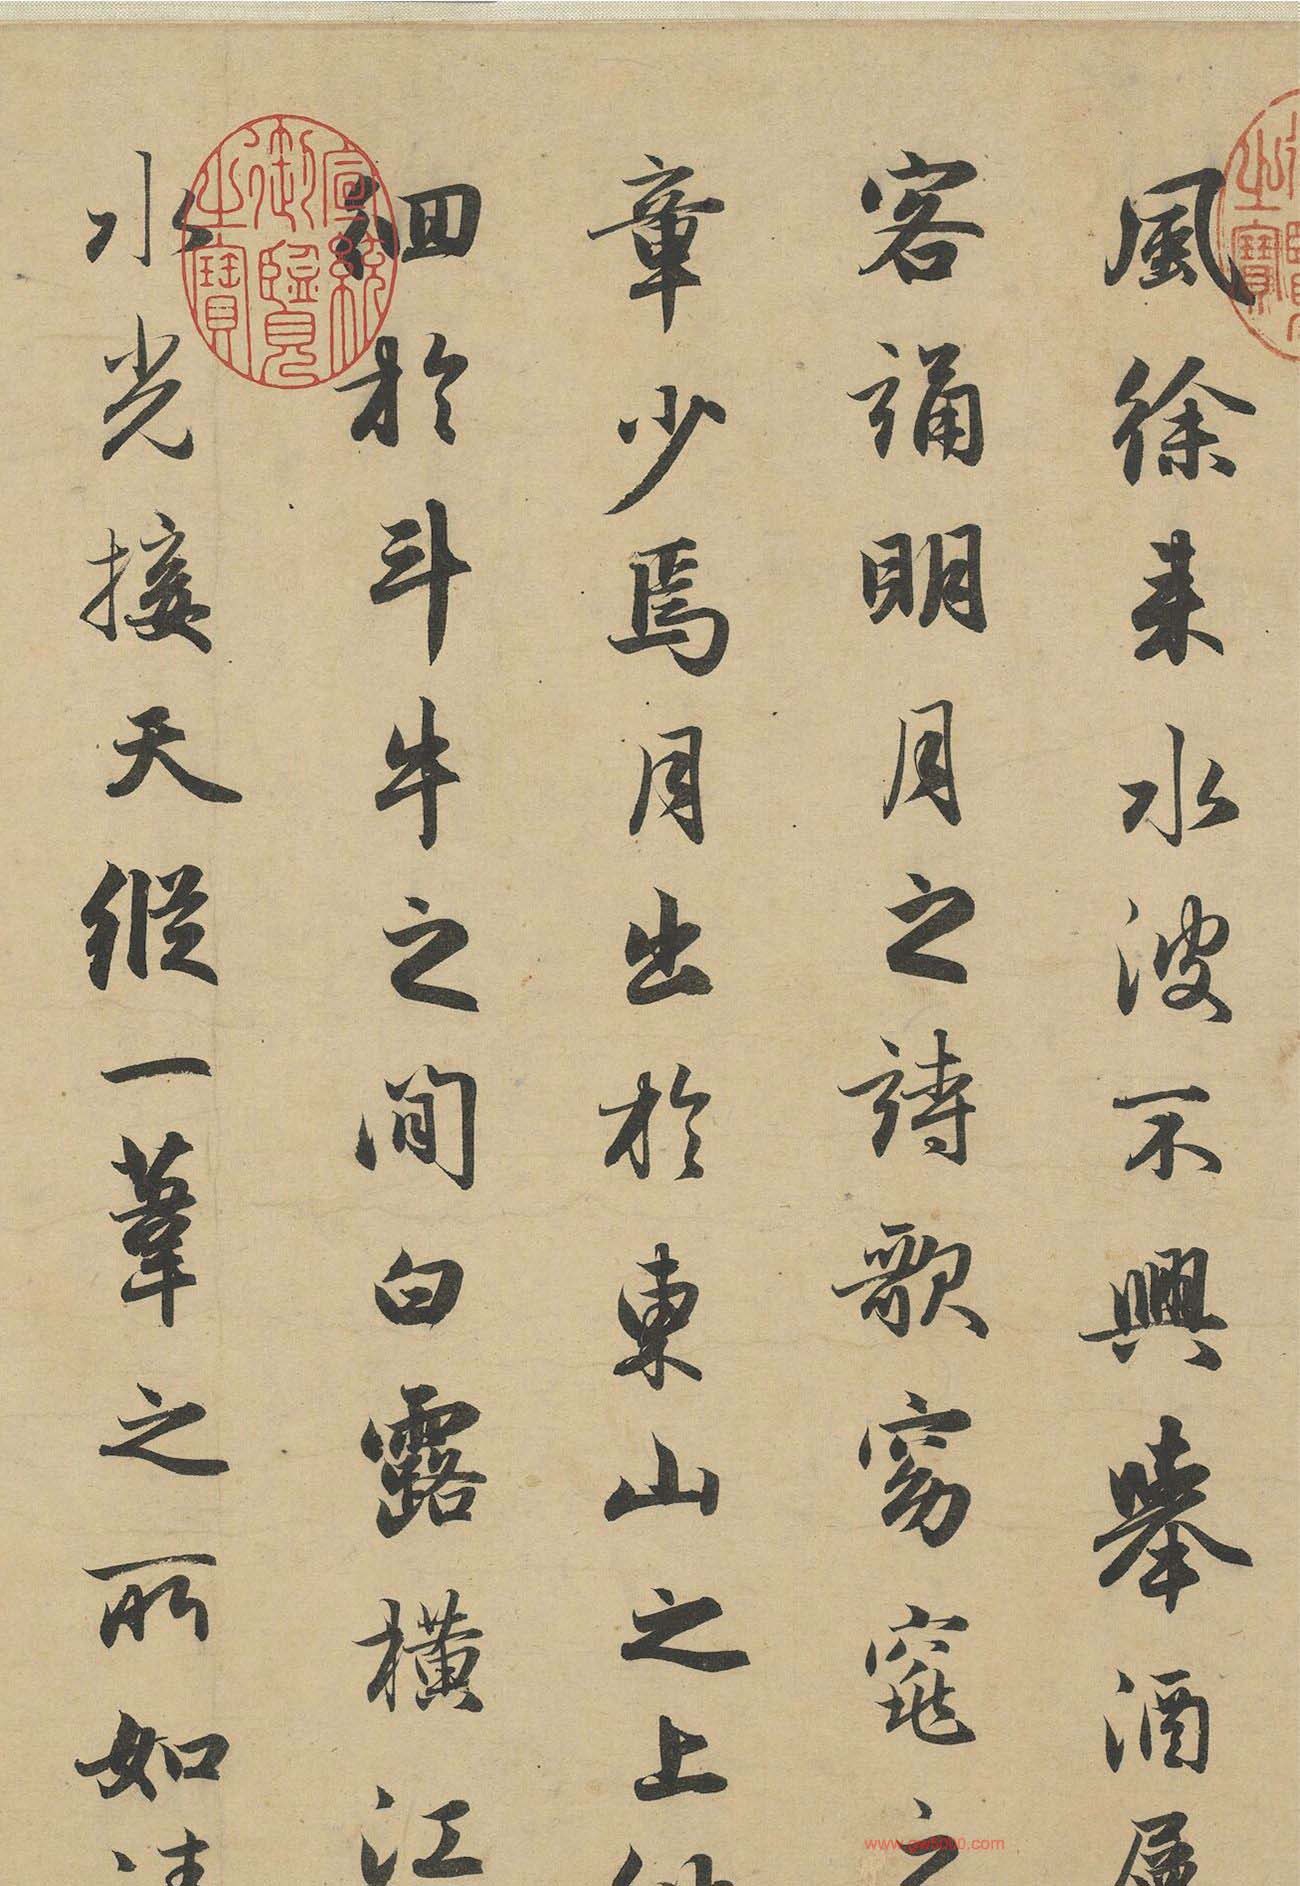 風徐来水波不興舉酒属
客誦明月之詩歌窈窕之
章少焉月出於東山之上
徊於斗牛之間白露橫江
水光接天縱一葦之所如
宣統御覽之寶